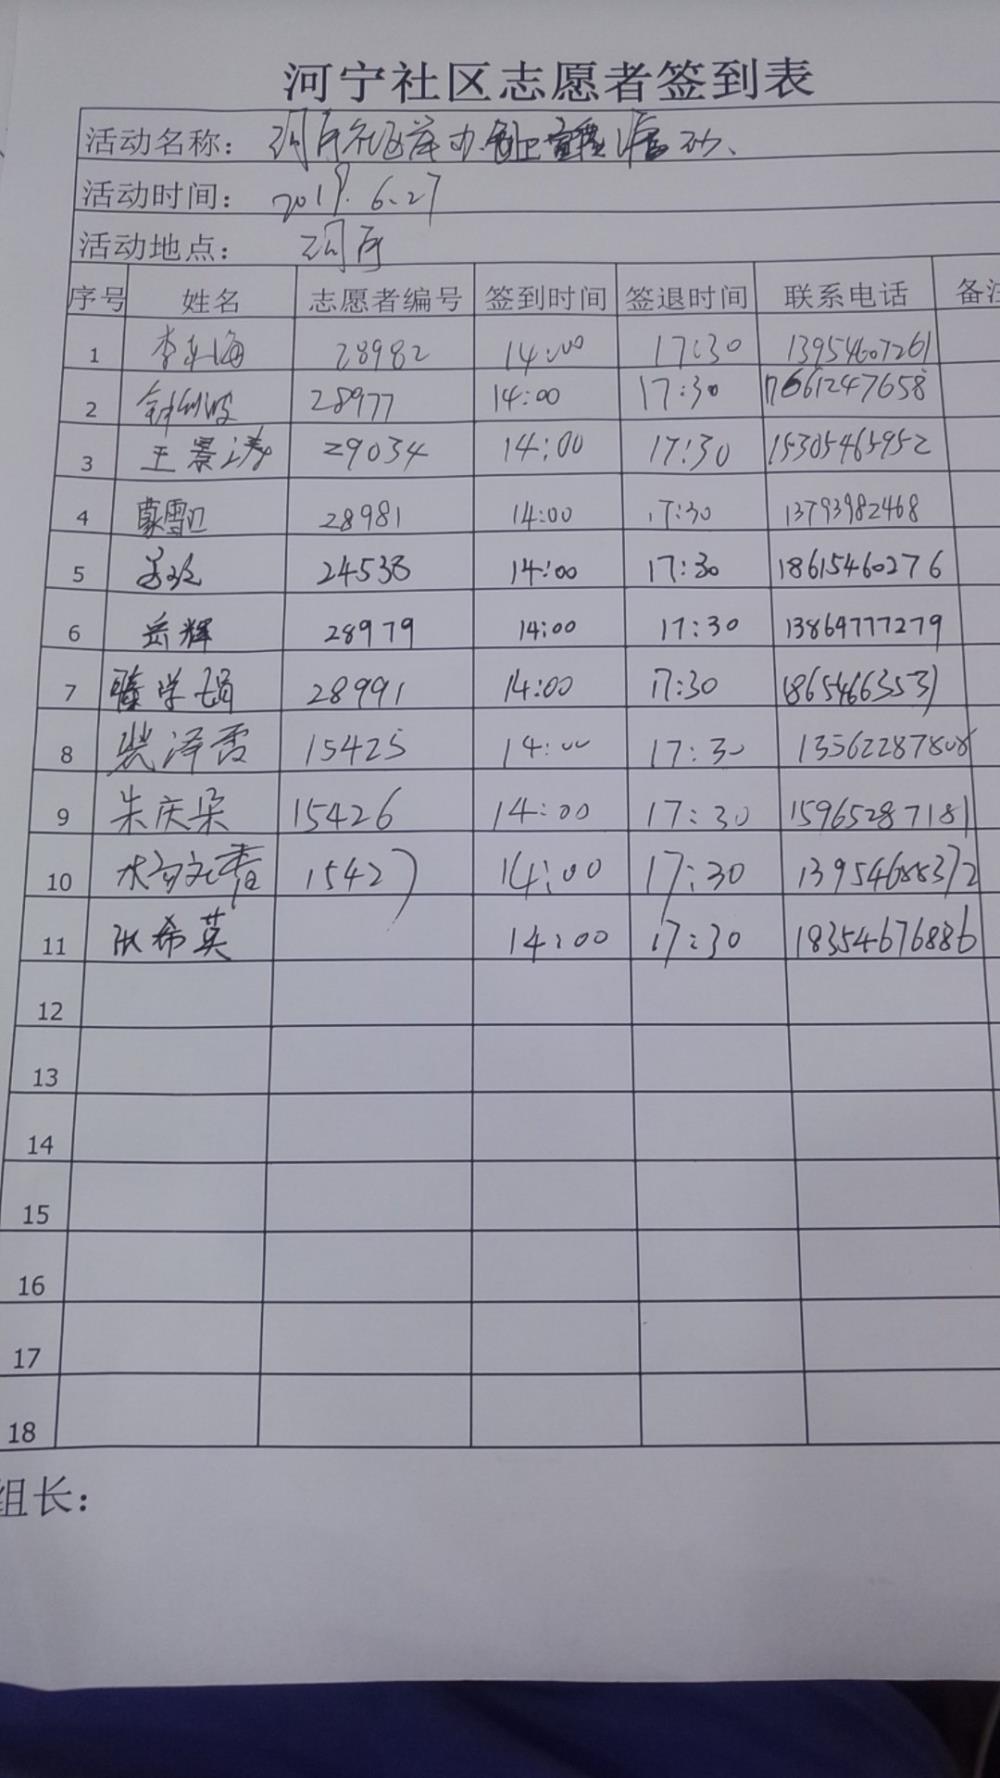 河宁社区志愿者签到表
活动名称：
活动时间： 2019.6.27
活动地点：
序号 姓名 志愿者编号 签到时间 签退时间 联系电话 备注
1 28982 14:00 17:30 13954607261
2 28977 14:00 17:30 17661247658
3 王景涛 29034 14:00 17:30 15305465952
4 28981 14:00 17:30 13793982468
5 24538 14:00 17:30 18615460276
6 岳辉 28979 14:00 17:30 13869777279
7 滕学娟 28991 14:00 17:30 18654663531
8 15425 14:00 17:30 13562287808
9 朱庆朵 15426 14:00 17:30 15965287181
10 15427 14:00 17:30 13954688372
11 张希英 14:00 17:30 18354676886
12
13
14
15
16
17
18
组长：